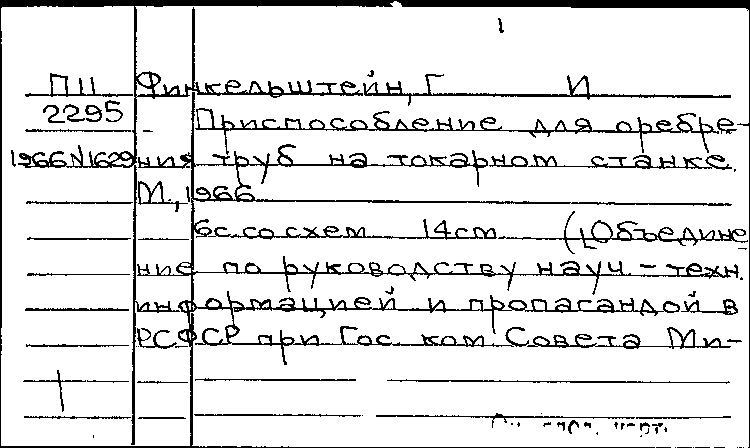 1
П11 Финкельштейн, Г И
2295 Приспособление для оребре-
1966 N1629 ния труб на токарном станке.
М., 1966
6с. со схем 14см ([Объедине
ние по руководству науч.-техн.
информацией и пропагандой в
РСФСР при Гос. ком. Совета Ми-